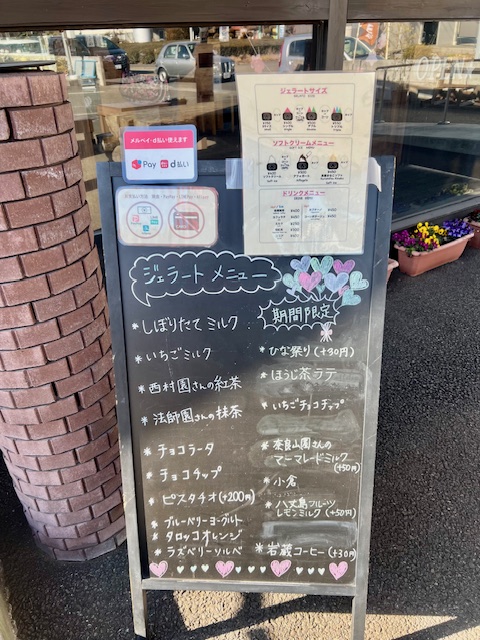 ジェラートサイズ
ソフトクリームメニュー
ドリンクメニュー
メルペイ・d払い使えます
Pay d払い
ジェラート メニュー
* しぼりたて ミルク
* いちごミルク
* 西村園さんの紅茶
* 法師園さんの抹茶
* チョコラータ
* チョコチップ
* ピスタチオ(+200円)
* ブルーベリーヨーグルト
* タロッコオレンジ
* ラズベリーソルベ
期間限定
* ひな祭り(+30円)
* ほうじ茶ラテ
* いちごチョコチップ
* 奈良山園さんの
マーマレードミルク
(+50円)
* 小倉
* 八丈島フルーツ
レモンミルク(+50円)
* 岩蔵コーヒー(+30円)